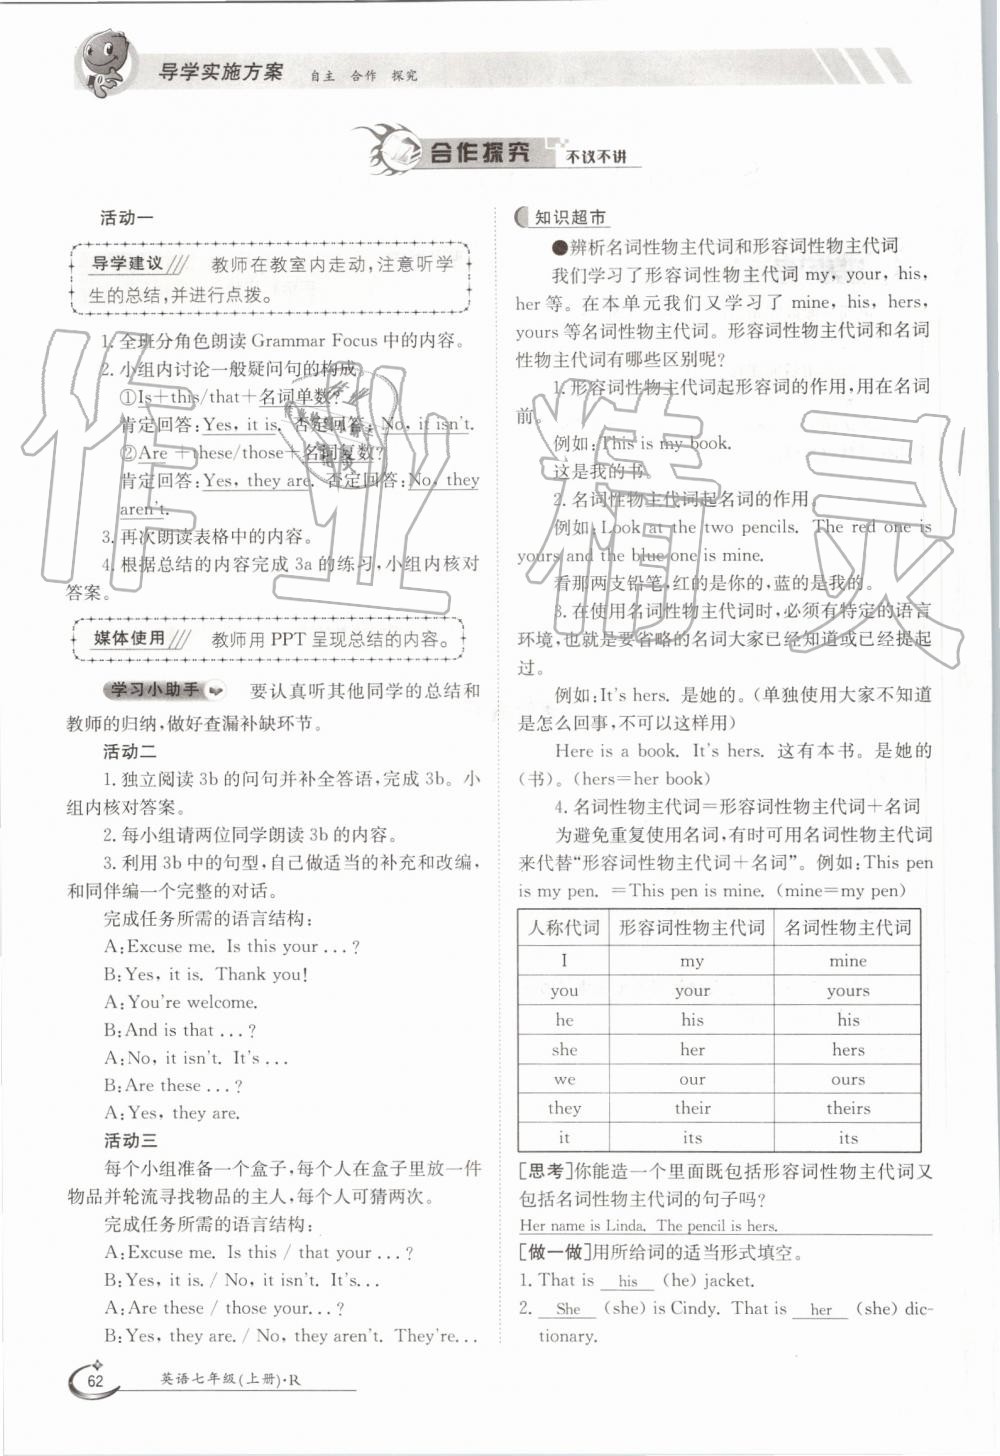 导学实施方案 自主 合作 探究
合作探究 不议不讲
活动一
导学建议 教师在教室内走动,注意听学
生的总结,并进行点拨。
1. 全班分角色朗读 Grammar Focus 中的内容。
2. 小组内讨论一般疑问句的构成。
①Is+this/that+名词单数?
肯定回答:Yes, it is. 否定回答:No, it isn't.
②Are +these/those+名词复数?
肯定回答:Yes, they are. 否定回答:No, they
aren't.
3. 再次朗读表格中的内容。
4. 根据总结的内容完成 3a 的练习,小组内核对
答案。
媒体使用 教师用 PPT 呈现总结的内容。
学习小助手 要认真听其他同学的总结和
教师的归纳,做好查漏补缺环节。
活动二
1. 独立阅读 3b 的问句并补全答语,完成 3b。小
组内核对答案。
2. 每小组请两位同学朗读 3b 的内容。
3. 利用 3b 中的句型,自己做适当的补充和改编,
和同伴编一个完整的对话。
完成任务所需的语言结构:
A:Excuse me. Is this your ...?
B:Yes, it is. Thank you!
A:You're welcome.
B:And is that ...?
A:No, it isn't. It's ...
B:Are these ...?
A:Yes, they are.
活动三
每个小组准备一个盒子,每个人在盒子里放一件
物品并轮流寻找物品的主人,每个人可猜两次。
完成任务所需的语言结构:
A:Excuse me. Is this / that your ...?
B:Yes, it is. / No, it isn't. It's...
A:Are these / those your...?
B:Yes, they are. / No, they aren't. They're...
知识超市
●辨析名词性物主代词和形容词性物主代词
我们学习了形容词性物主代词 my, your, his,
her 等。在本单元我们又学习了 mine, his, hers,
yours 等名词性物主代词。形容词性物主代词和名词
性物主代词有哪些区别呢?
1. 形容词性物主代词起形容词的作用,用在名词
前。
例如:This is my book.
这是我的书。
2. 名词性物主代词起名词的作用。
例如:Look at the two pencils. The red one is
yours and the blue one is mine.
看那两支铅笔,红的是你的,蓝的是我的。
3. 在使用名词性物主代词时,必须有特定的语言
环境,也就是要省略的名词大家已经知道或已经提起
过。
例如:It's hers. 是她的。(单独使用大家不知道
是怎么回事,不可以这样用)
Here is a book. It's hers. 这有本书。是她的
(书)。(hers=her book)
4. 名词性物主代词=形容词性物主代词+名词
为避免重复使用名词,有时可用名词性物主代词
来代替“形容词性物主代词+名词”。例如:This pen
is my pen. =This pen is mine. (mine=my pen)
人称代词 形容词性物主代词 名词性物主代词
I my mine
you your yours
he his his
she her hers
we our ours
they their theirs
it its its
[思考]你能造一个里面既包括形容词性物主代词又
包括名词性物主代词的句子吗?
Her name is Linda. The pencil is hers.
[做一做]用所给词的适当形式填空。
1. That is his (he) jacket.
2. She (she) is Cindy. That is her (she) dic-
tionary.
62 英语七年级(上册)·R
作业精灵